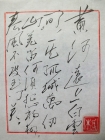 黄河远上白云
间一片孤城万仞
山羌笛何须怨杨柳
春风不度玉门